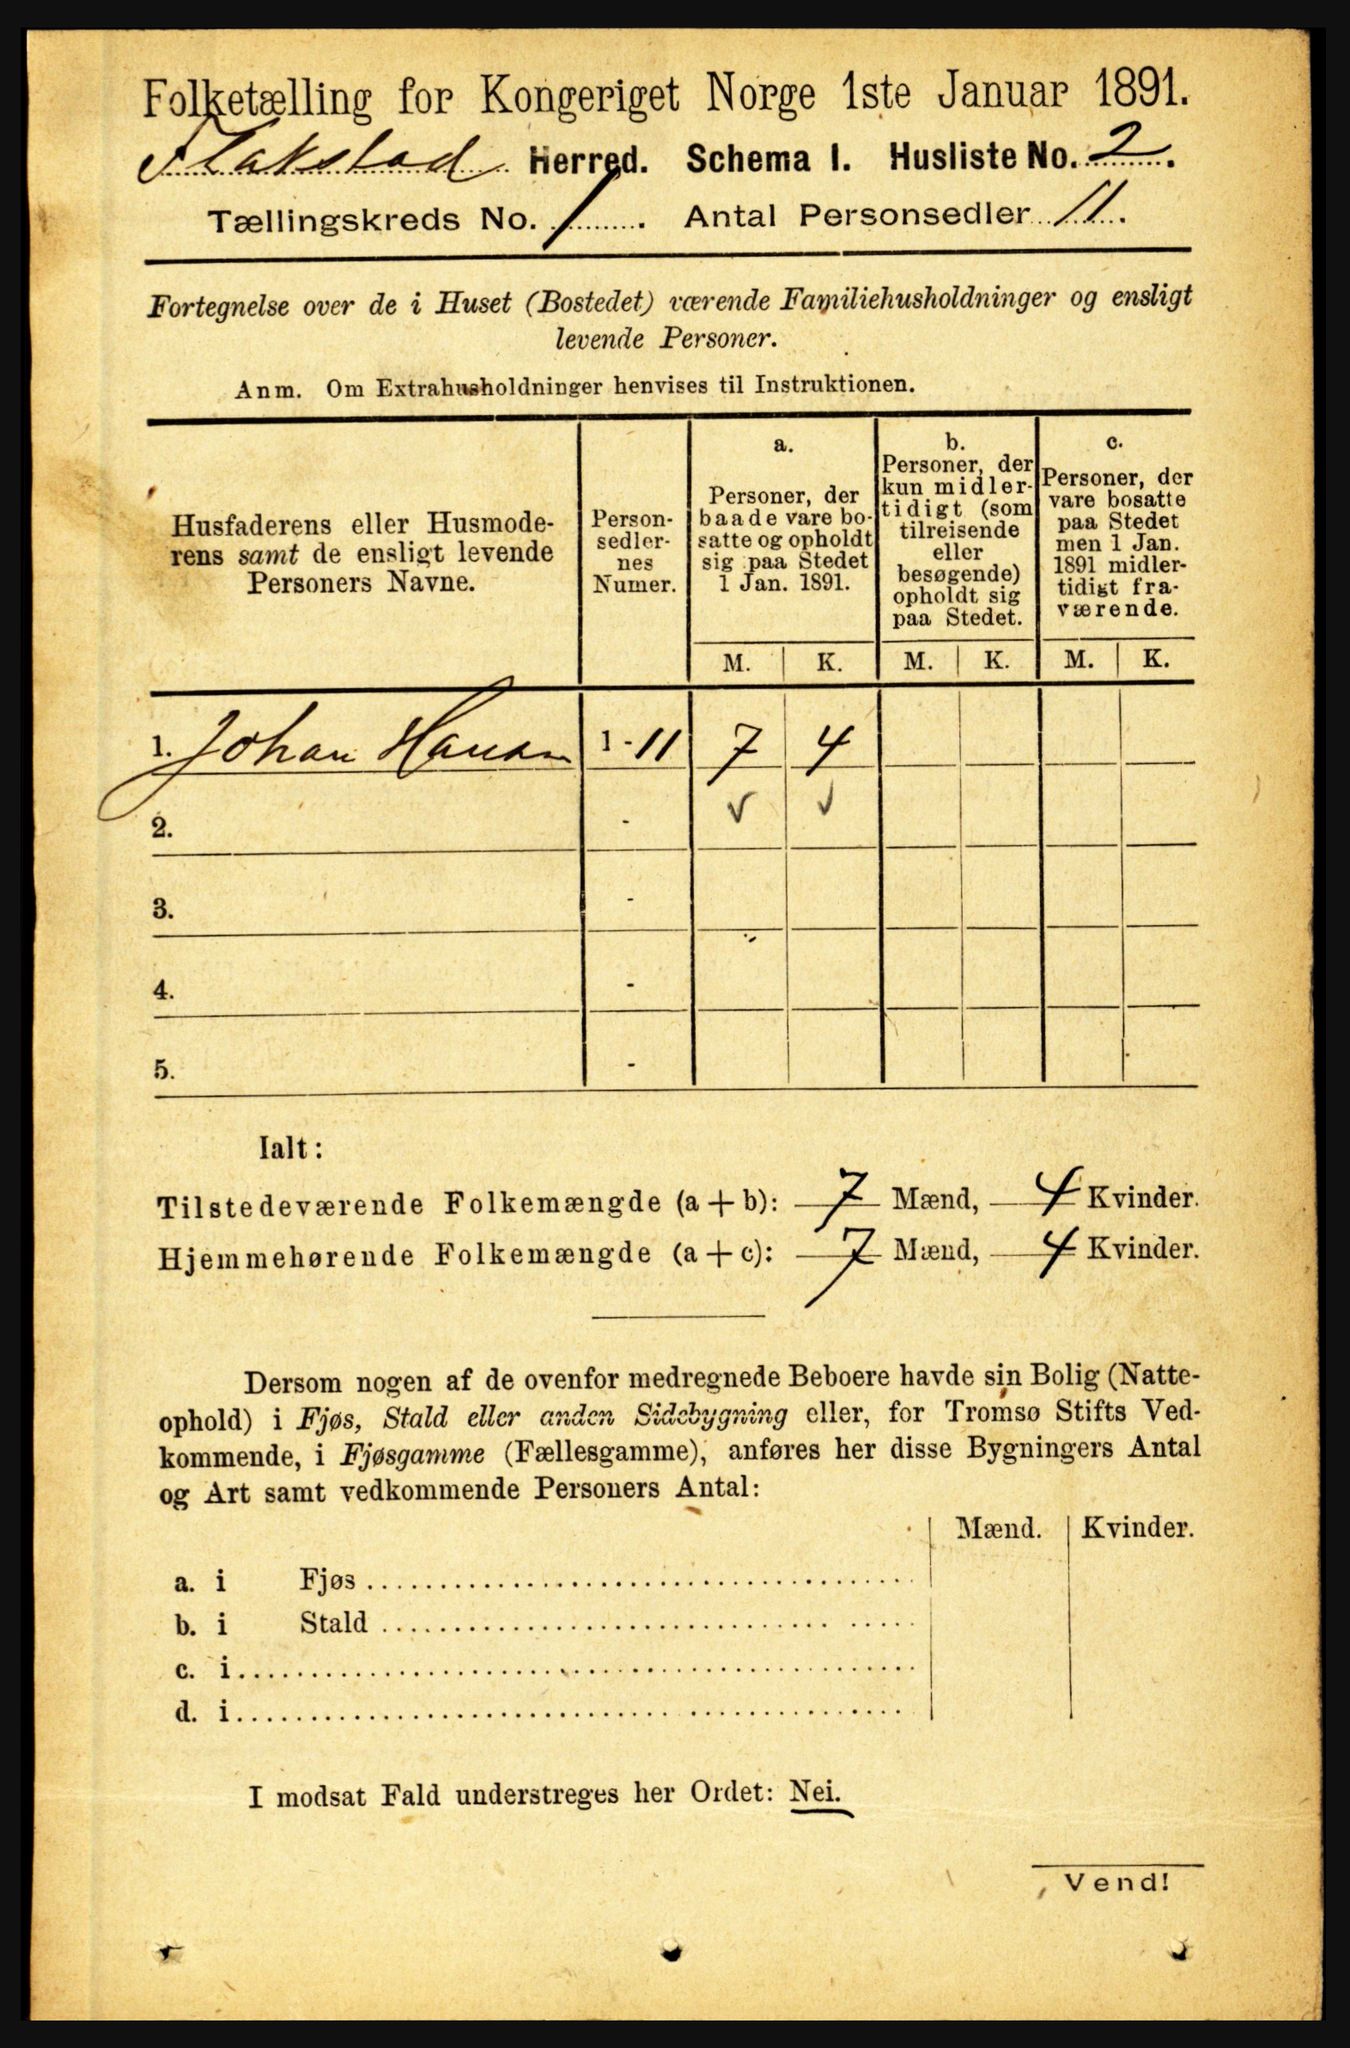 Folketælling for Kongeriget Norge 1ste Januar 1891.
Flakstad Herred. Schema I. Husliste No. 2.
Tællingskreds No. 1. Antal Personsedler 11.
Fortegnelse over de i Huset (Bostedet) værende Familiehusholdninger og ensligt
levende Personer.
Anm. Om Extrahusholdninger henvises til Instruktionen.
Husfaderens eller Husmode-
rens samt de ensligt levende
Personers Navne.
Person-
sedler-
nes
Numer.
a.
Personer, der
baade vare bo-
satte og opholdt
sig paa Stedet
1 Jan. 1891.
b.
Personer, der
kun midler-
tidigt (som
tilreisende
eller
besøgende)
opholdt sig
paa Stedet.
c.
Personer, der
vare bosatte
paa Stedet
men 1 Jan.
1891 midler-
tidigt fra-
værende.
M. K. M. K. M. K.
1. Johan Hansen 1 - 11 7 4
2. -
3. -
4. -
5. -
Ialt:
Tilstedeværende Folkemængde (a + b): 7 Mænd, 4 Kvinder.
Hjemmehørende Folkemængde (a + c): 7 Mænd, 4 Kvinder.
Dersom nogen af de ovenfor medregnede Beboere havde sin Bolig (Natte-
ophold) i Fjøs, Stald eller anden Sidebygning eller, for Tromsø Stifts Ved-
kommende, i Fjøsgamme (Fællesgamme), anføres her disse Bygningers Antal
og Art samt vedkommende Personers Antal:
Mænd. Kvinder.
a. i Fjøs
b. i Stald
c. i
d. i
I modsat Fald understreges her Ordet: Nei.
Vend!